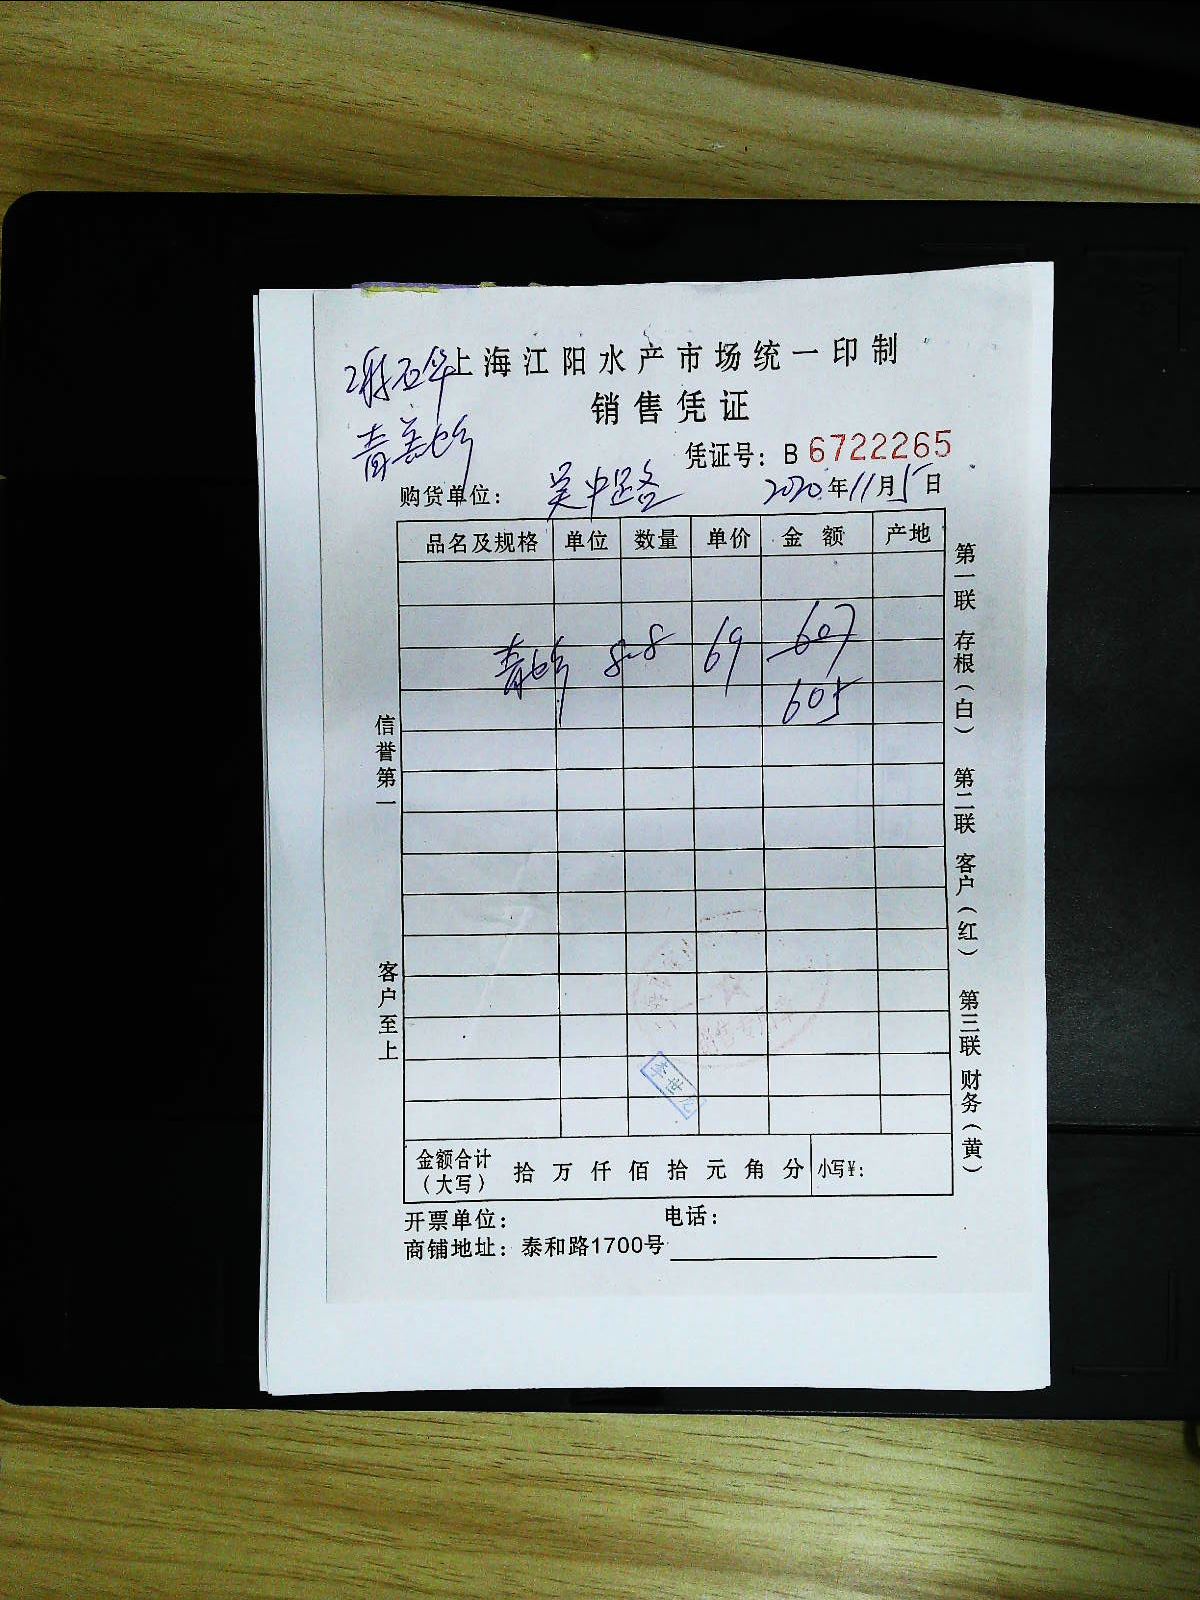 上海江阳水产市场统一印制
销售凭证
凭证号：B 6722265
购货单位： 吴中路 2020年11月5日
品名及规格 单位 数量 单价 金额 产地
8.8 69 607
605
信誉第一
客户至上
第一联 存根（白） 第二联 客户（红） 第三联 财务（黄）
李世龙
金额合计（大写） 拾 万 仟 佰 拾 元 角 分 小写¥：
开票单位： 电话：
商铺地址：泰和路1700号